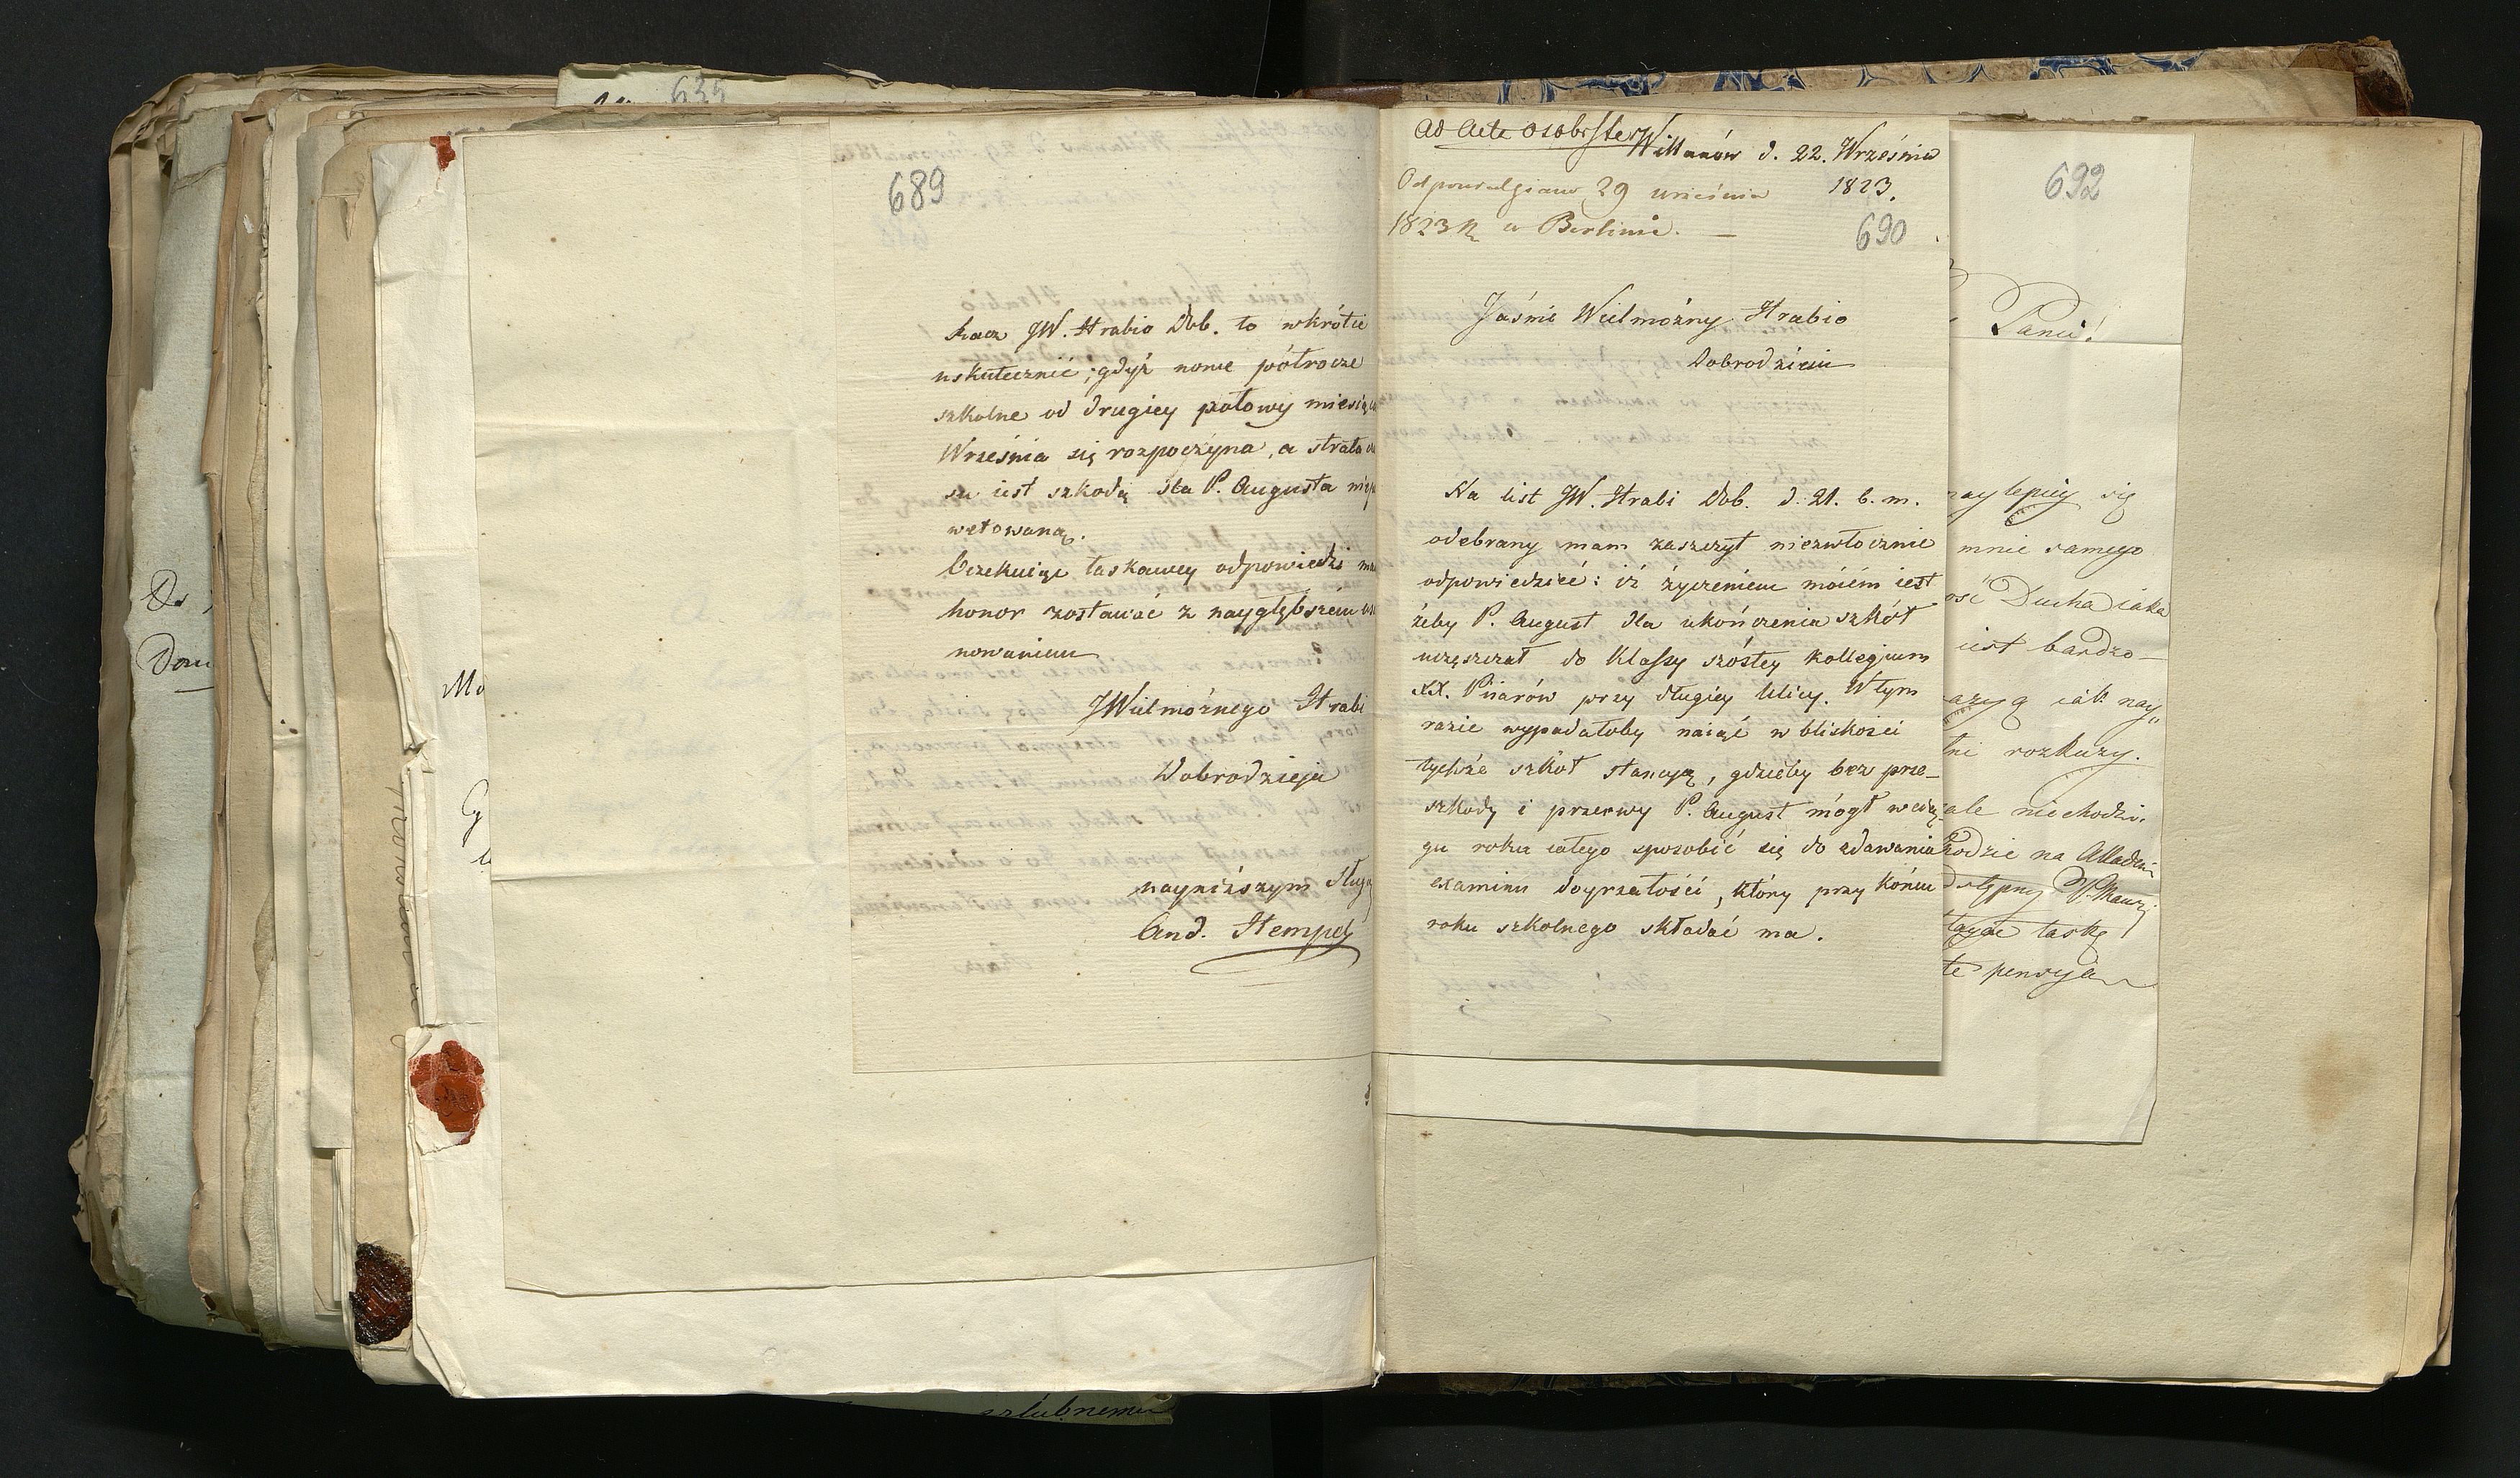 635
689
Racz JW. Hrabio Dob. to wkrótce
uskutecznić; gdyż nowe półrocze
szkolne od drugiey połowy miesiąca
Września się rozpoczyna, a strata
su iest szkodą dla P. Augusta
wetowaną.
Oczekuiąc łaskawey odpowiedzi
honor zostawać z naygłębszém
nowaniem
JWielmożnego Hrabi
Dobrodzieja
nayniższym Sługą
And. Hempel
Ad Acta osobiste
Willanów d. 22. Września
1823.
Odpowiedziano 29 września
1823 R w Berlinie. —
690
Jaśnie Wielmożny Hrabio
Dobrodzieiu
Na list JW. Hrabi Dob. d. 21. b. m.
odebrany mam zaszczyt niezwłocznie
odpowiedzieć: iż życzeniem moiém iest
żeby P. August dla ukończenia szkół
uczęszczał do Klassy szóstey kollegium
XX. Piiarów przy długiey Ulicy. W tym
razie wypadałoby naiąć w bliskości
tychże szkół stancyą, gdzieby bez prze-
szkody i przerwy P. August mógł w cią-
gu roku całego sposobić się do zdawania
examinu doyrzałości, który przy końcu
roku szkolnego składać ma.
692
Panie!
naylepiey się
mnie samego
ość Ducha iaka
iest bardzo
iak nay„
rozkazy.
ale niechodzi.
na Akademii
łaskę
te pensyą
Do
Dom
Mo
szlubnemu